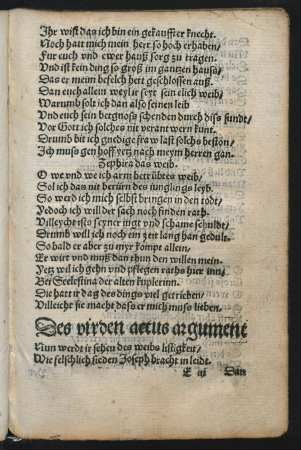 Ihr wist das ich bin ein gekauffter knecht.
Noch hatt mich mein herr so hoch erhaben/
Für euch und ewer hauß sorg zu tragen.
Und ist kein ding so groß im gantzen hauß/
Das er meim befelch hett geschlossen auß.
Dan euch allein weyl ir seyt sein elich weib/
Warumb solt ich dan also seinen leib
Und euch sein bergnoß schenden durch diß sundt/
Vor Gott ich solches nit verantwern kunt.
Drumb bit ich gnedige fraw last solchs beston/
Ich mus gen hoff yetz nach meym herren gan.
Zephira das weib.
O we und we ich arm betrübtes weib/
Sol ich das nit berürn des iunglings leyb.
So werd ich mich selbst bringen in den todt/
Yedoch ich will der sach noch finden rath.
Villeycht ists seyner iugt und schame schuldt/
Drumb will ich noch ein zeit lang han gedult.
So bald er aber zu myr kompt allein/
Er wirt und muß dan thun den willen mein.
Yetz wil ich gehn und pflegen raths hier inn/
Bei Seelestina der alten kuplerinn.
Die hatt ir dag des dings viel getrieben/
Villeicht sie macht das er mich muß lieben.
Des vierden actus argument
Nun werdt ir sehen des weibs listigkeit/
Wie felschlich sie den Joseph bracht in leidt.
E iij Dan